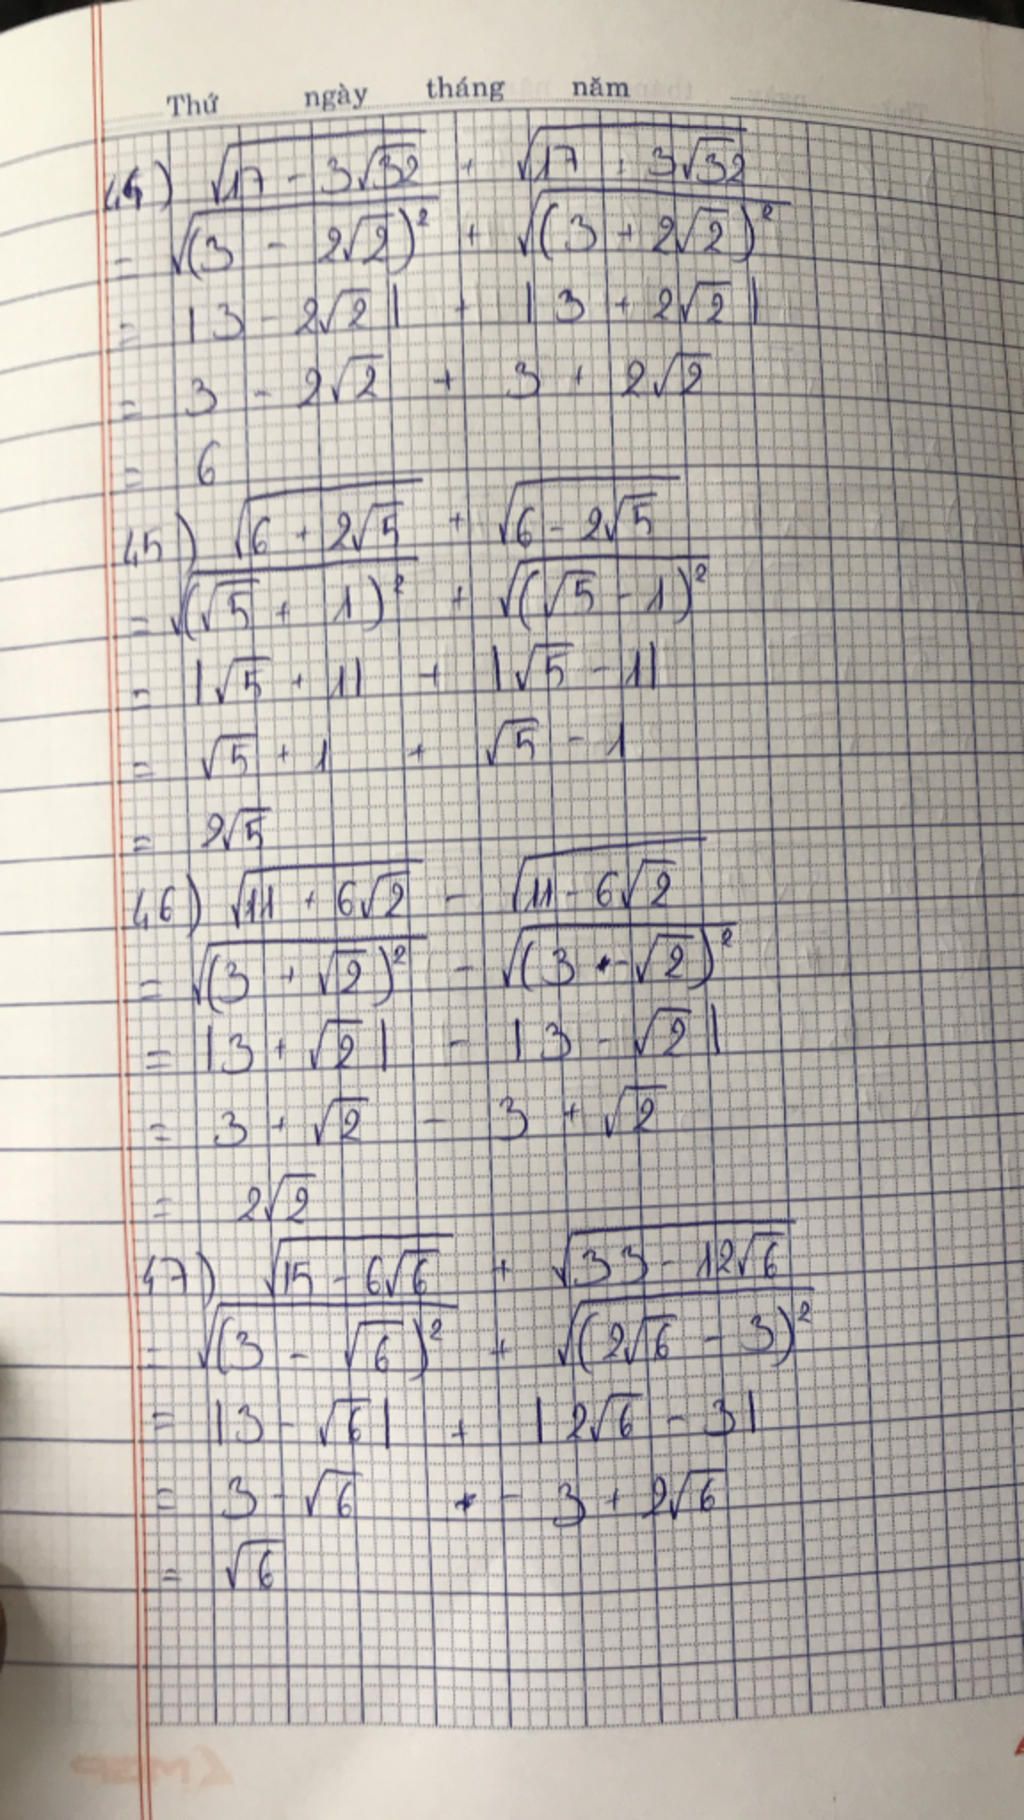 Thứ ngày tháng năm
44) √(17 - 3√32) + √(17 + 3√32)
= √((3 - 2√2)²) + √((3 + 2√2)²)
= |3 - 2√2| + |3 + 2√2|
= 3 - 2√2 + 3 + 2√2
= 6
45) √(6 + 2√5) + √(6 - 2√5)
= √((√5 + 1)²) + √((√5 - 1)²)
= |√5 + 1| + |√5 - 1|
= √5 + 1 + √5 - 1
= 2√5
46) √(11 + 6√2) - √(11 - 6√2)
= √((3 + √2)²) - √((3 - √2)²)
= |3 + √2| - |3 - √2|
= 3 + √2 - 3 + √2
= 2√2
47) √(15 - 6√6) + √(33 - 12√6)
= √((3 - √6)²) + √((2√6 - 3)²)
= |3 - √6| + |2√6 - 3|
= 3 - √6 - 3 + 2√6
= √6